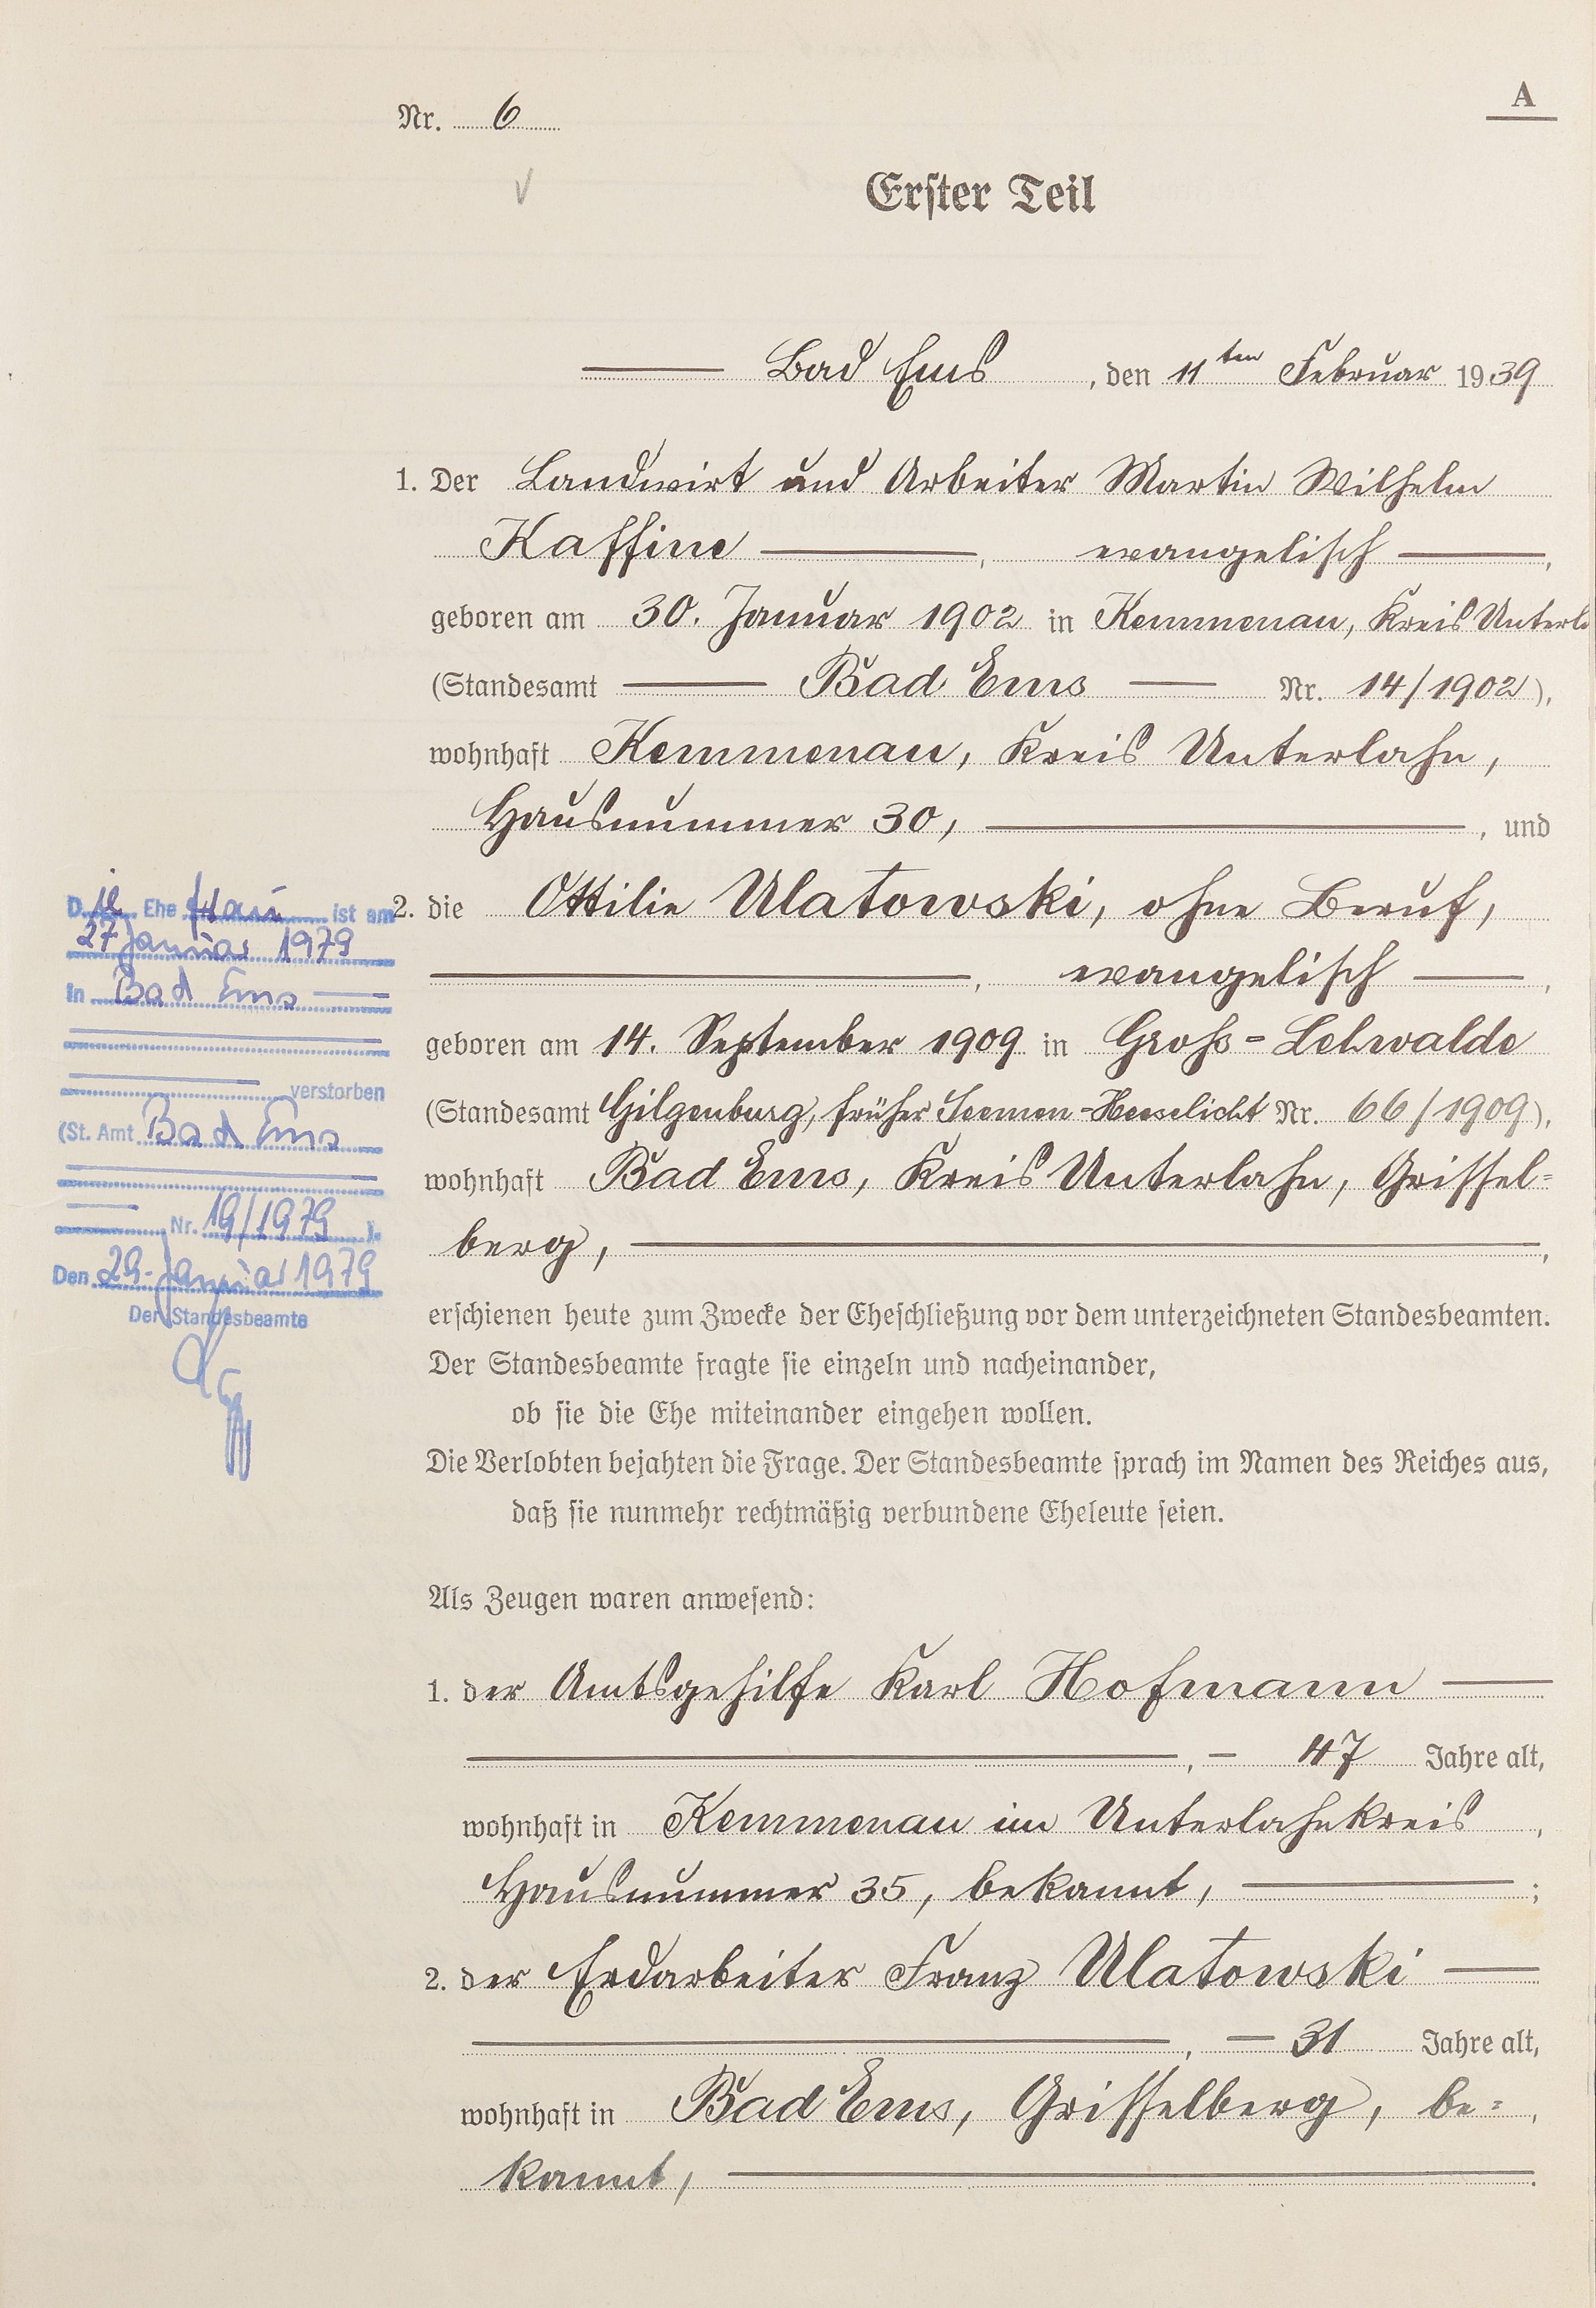 A
Nr. 6
Erster Teil
Bad Ems, den 11ten Februar 1939
1. Der Landwirt und Arbeiter Martin Wilhelm
Kaffine, evangelisch,
geboren am 30. Januar 1902 in Kemmenau, Kreis Unterl
(Standesamt Bad Ems Nr. 14/1902),
wohnhaft Kemmenau, Kreis Unterlahn,
Hausnummer 30, , und
2. die Ottilie Ulatowski, ohne Beruf,
, evangelisch,
geboren am 14. September 1909 in Groß-Lehwalde
(Standesamt Gilgenburg, früher Seemen-Heeselicht Nr. 66/1909),
wohnhaft Bad Ems, Kreis Unterlahn, Grissel=
berg, ,
erschienen heute zum Zwecke der Eheschließung vor dem unterzeichneten Standesbeamten.
Der Standesbeamte fragte sie einzeln und nacheinander,
ob sie die Ehe miteinander eingehen wollen.
Die Verlobten bejahten die Frage. Der Standesbeamte sprach im Namen des Reiches aus,
daß sie nunmehr rechtmäßig verbundene Eheleute seien.
Als Zeugen waren anwesend:
1. der Amtsgehilfe Karl Hofmann
, 47 Jahre alt,
wohnhaft in Kemmenau im Unterlahnkreis,
Hausnummer 35, bekannt, ;
2. der Erdarbeiter Franz Ulatowski
, 31 Jahre alt,
wohnhaft in Bad Ems, Grisselberg, be=,
kannt, .
Die Ehefrau ist am
27 Januar 1979
in Bad Ems
verstorben
(St. Amt Bad Ems
Nr. 19/1979 ).
Den 29. Januar 1979
Der Standesbeamte